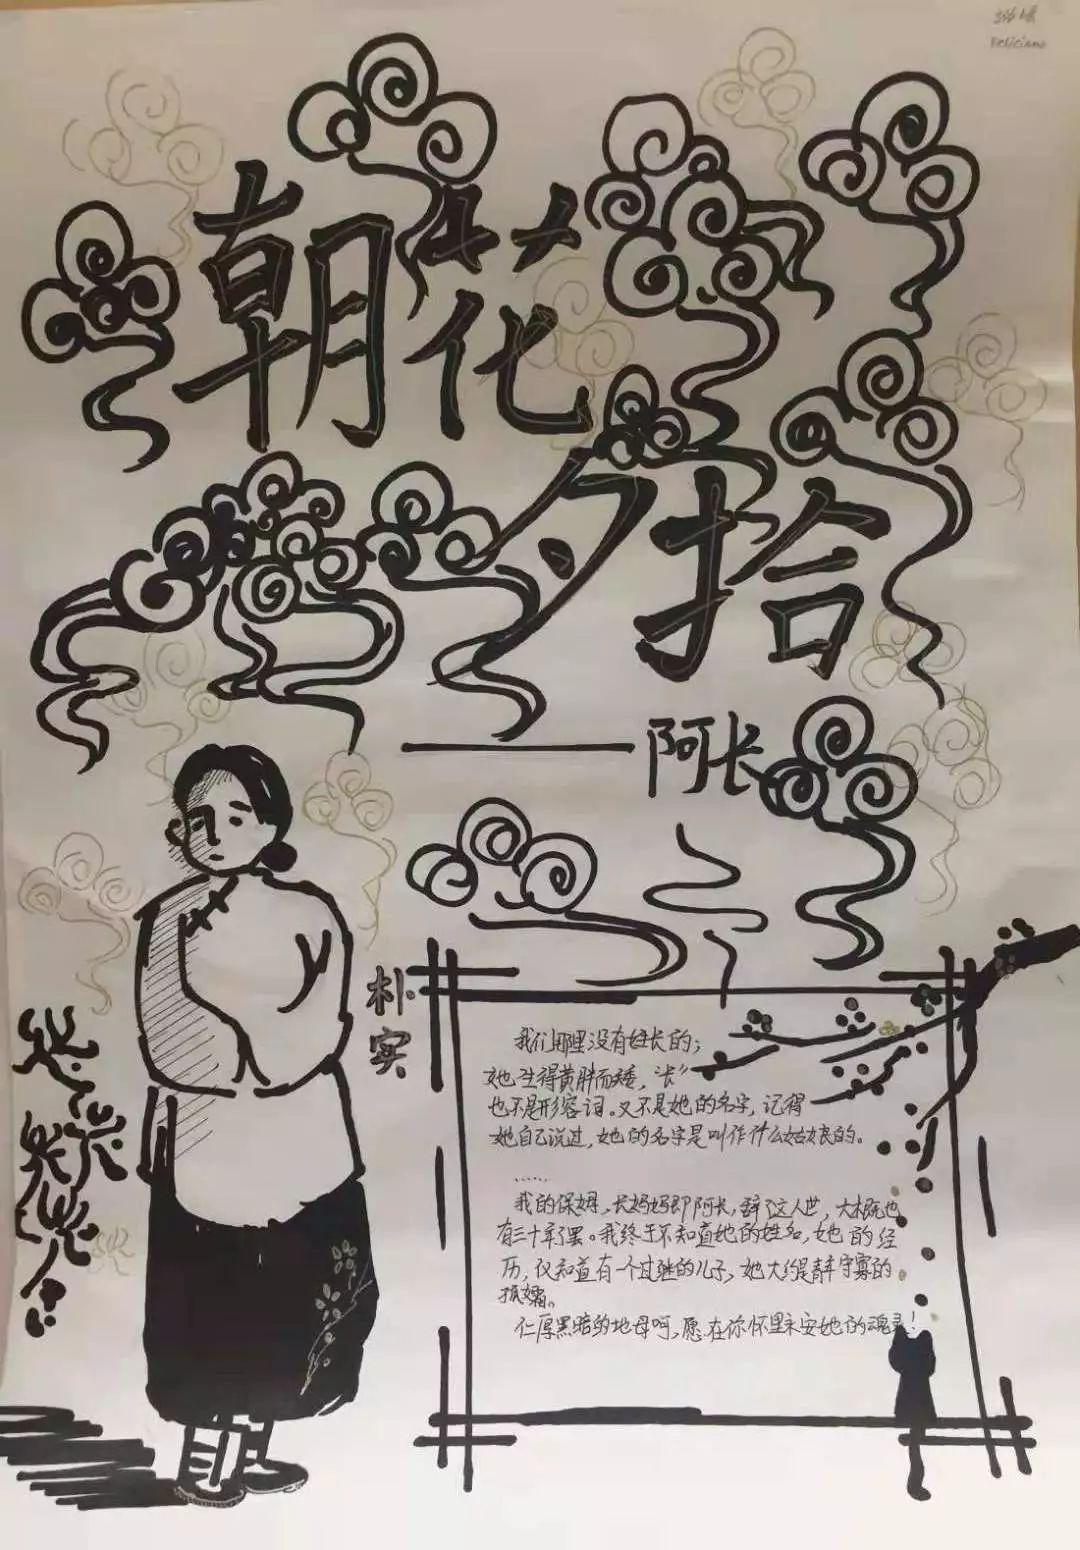 Feliciano
朝花
夕拾
——阿长
朴实
我们那里没有姓长的;
她生得黄胖而矮,“长”
也不是形容词。又不是她的名字,记得
她自己说过,她的名字是叫作什么姑娘的。
……
我的保姆,长妈妈即阿长,辞了这人世,大概也
有三十年了罢。我终于不知道她的姓名,她的经
历,仅知道有一个过继的儿子,她大约是青年守寡的
孤孀。
仁厚黑暗的地母呵,愿在你怀里永安她的魂灵!